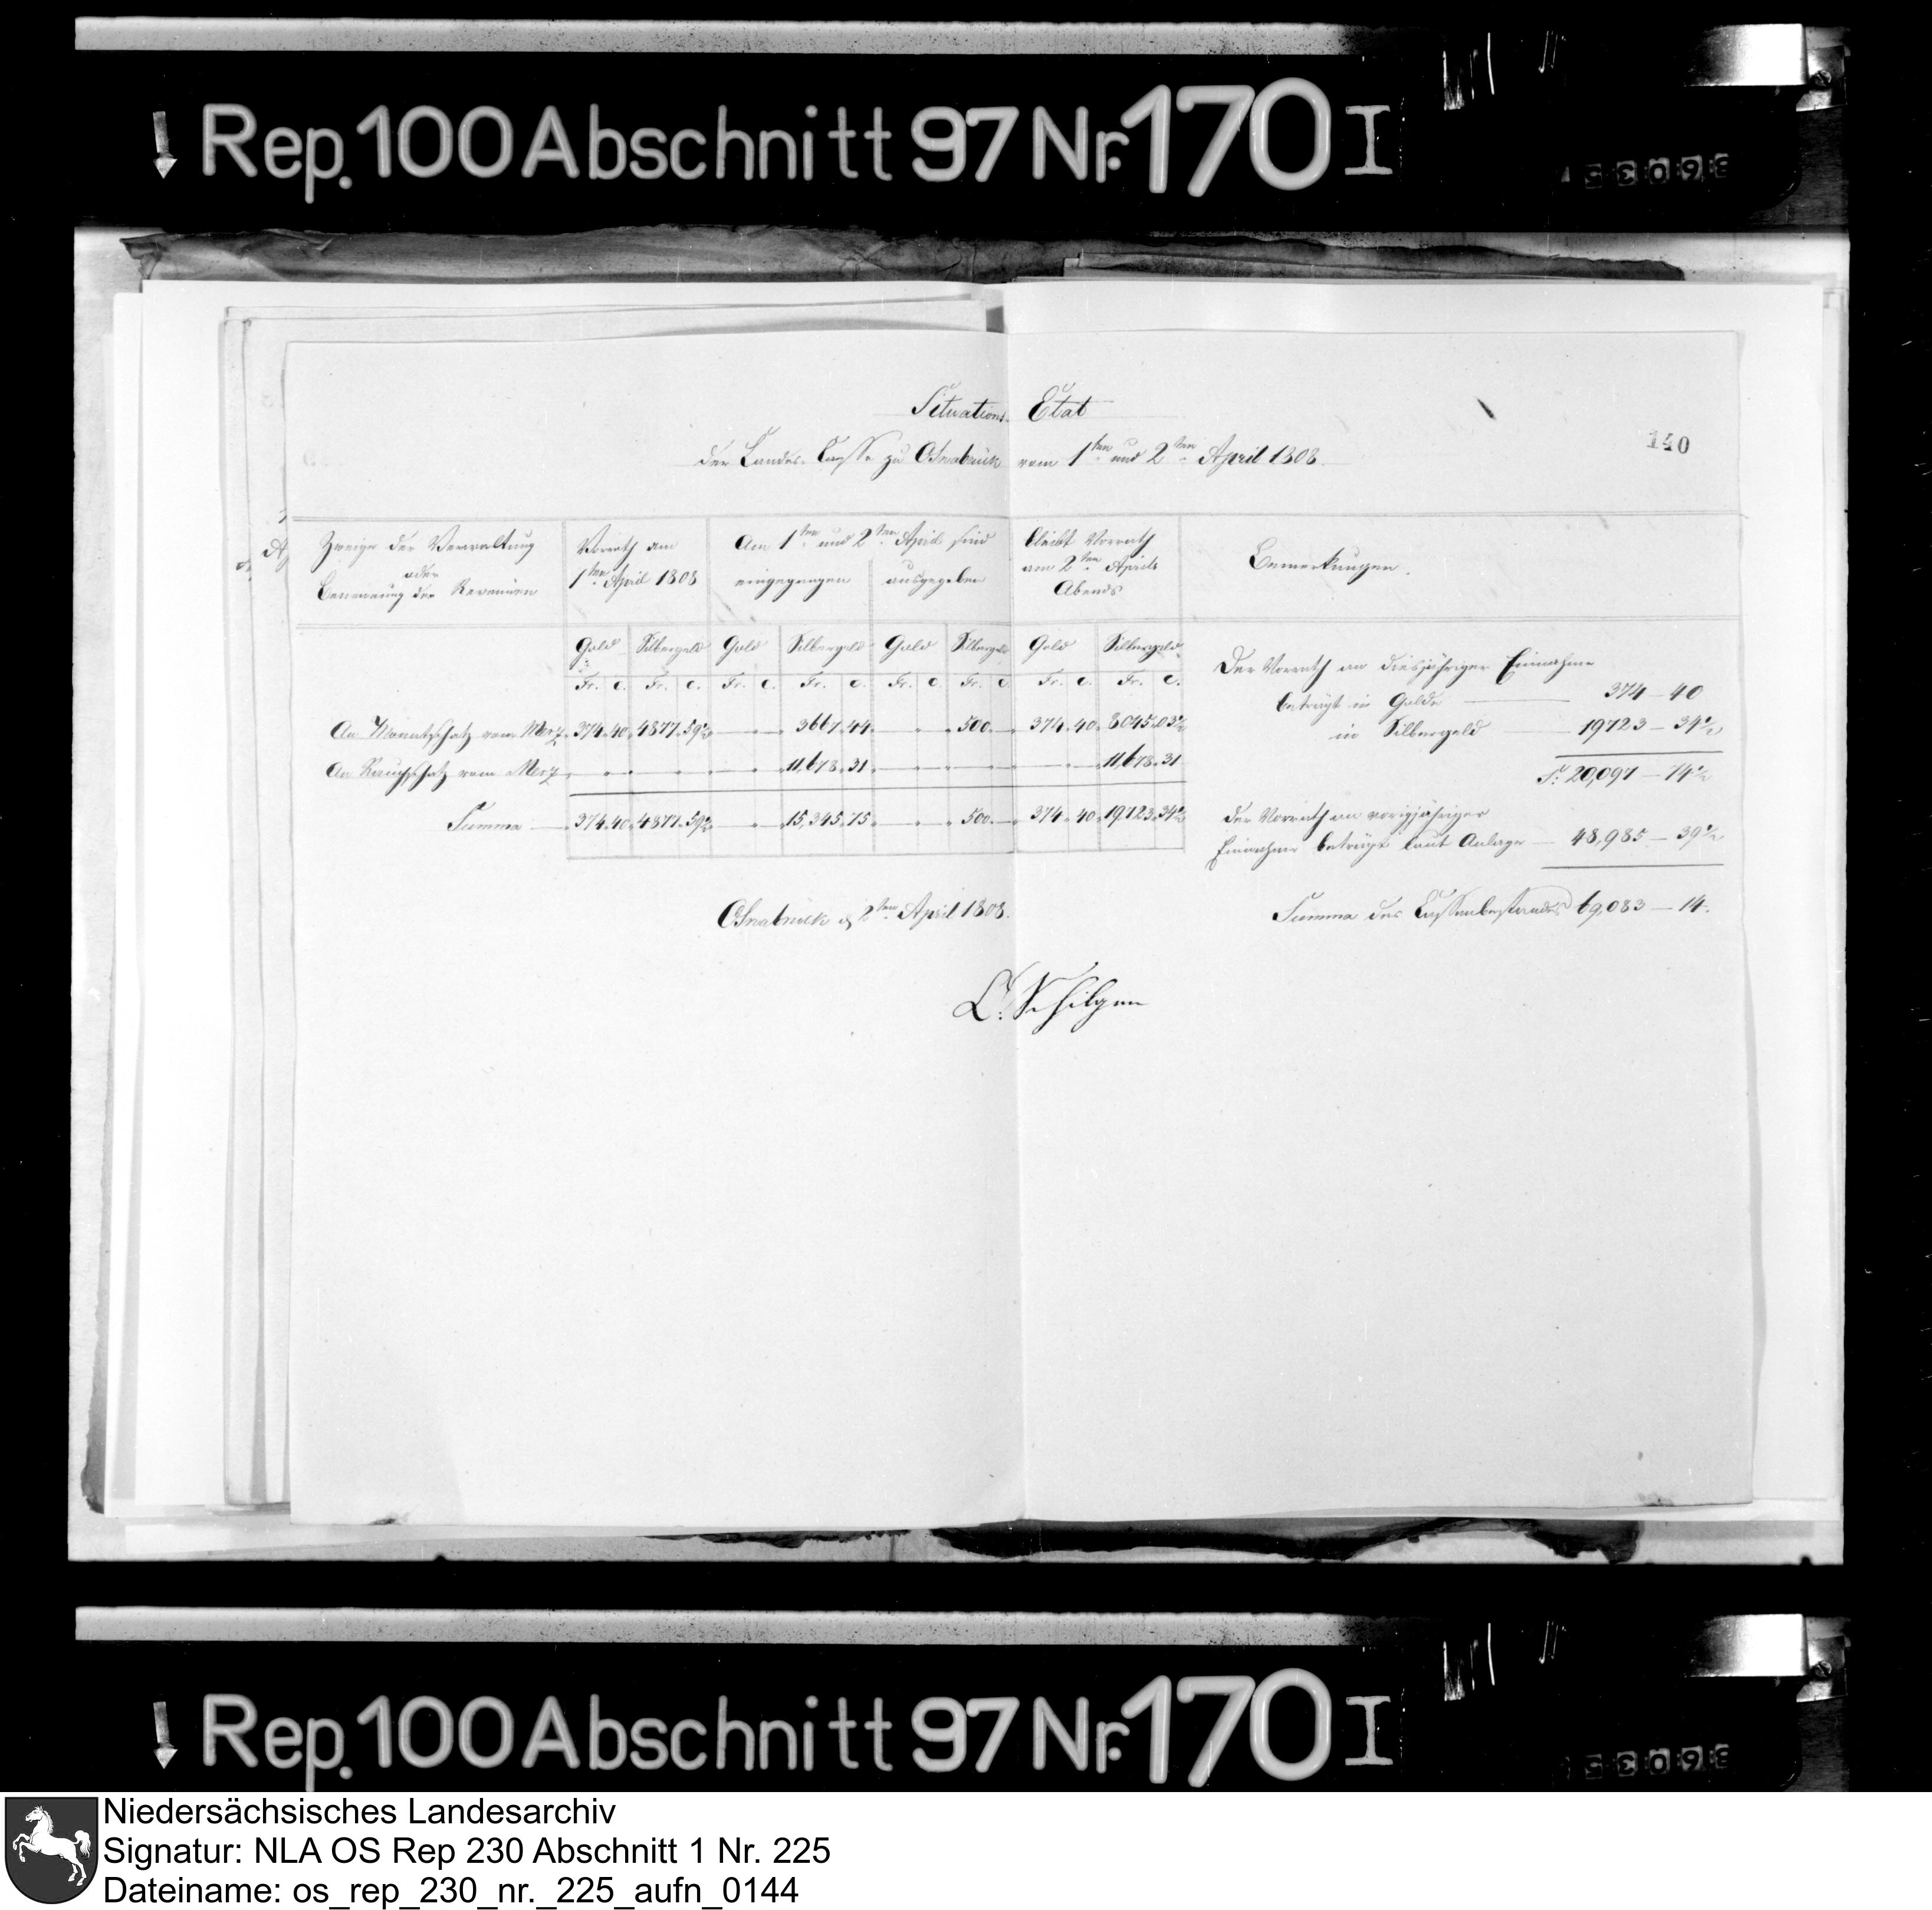 Rep. 100 Abschnitt 97 Nr. 170 I
Situations Etat
der Landes-Casse zu Osnabrück vom 1ten und 2ten April 1808.
140
Zweige der Verwaltung
oder
Benennung der Revenüen
Vorrath am
1ten April 1808
Am 1ten und 2ten April sind
eingegangen
ausgegeben
bleibt Vorrath
am 2ten April
Abends
Bemerkungen.
Gold Silbergeld Gold Silbergeld Gold Silbergeld Gold Silbergeld
Fr. c. Fr. c. Fr. c. Fr. c. Fr. c. Fr. c. Fr. c. Fr. c.
An Monatschatz vom Merz 374. 40. 4877. 59½ 3667. 44. 500. 374. 40. 8045. 03½
An Rauchschatz vom Merz 11,678. 31. 11,678. 31
Summa 374. 40. 4877. 59½ 15,345. 75. 500. 374. 40. 19723. 34½
Der Vorrath an diesjähriger Einnahme
beträgt in Golde 374 - 40
in Silbergeld 19723 - 34½
Fr. 20,097 - 74½
der Vorrath an vorigjähriger
Einnahme beträgt laut Anlage 48,985 - 39½
Summa des Cassenbestandes 69,083 - 14.
Osnabrück d 2ten April 1808.
Schilgen
Rep. 100 Abschnitt 97 Nr. 170 I
Niedersächsisches Landesarchiv
Signatur: NLA OS Rep 230 Abschnitt 1 Nr. 225
Dateiname: os_rep_230_nr._225_aufn_0144